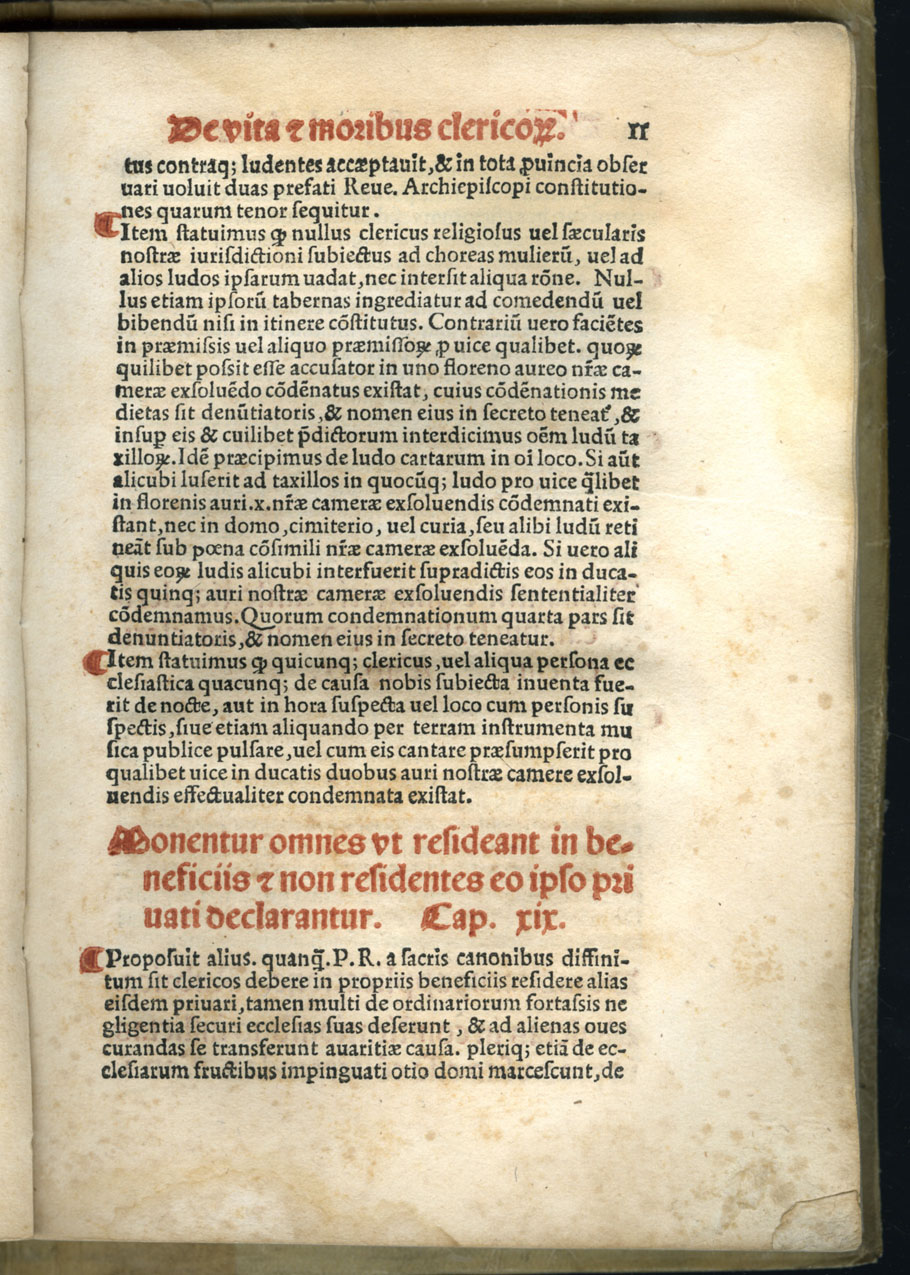 De vita ⁊ moribus clericoꝝ. xx
tus contraq; ludentes accæptauit, & in tota ꝓuincia obser
uari uoluit duas prefati Reue. Archiepiscopi constitutio-
nes quarum tenor sequitur.
¶Item statuimus ꝙ nullus clericus religiosus uel sæcularis
nostræ iurisdictioni subiectus ad choreas mulierũ, uel ad
alios ludos ipsarum uadat, nec intersit aliqua rõne. Nul-
lus etiam ipsorũ tabernas ingrediatur ad comedendũ uel
bibendũ nisi in itinere cõstitutus. Contrariũ uero faciẽtes
in præmissis uel aliquo præmissoꝝ, ꝓ uice qualibet. quoꝝ
quilibet possit esse accusator in uno floreno aureo nr̃æ ca-
meræ exsoluẽdo cõdẽnatus existat, cuius cõdẽnationis me
dietas sit denũtiatoris, & nomen eius in secreto teneat᷑, &
insuꝑ eis & cuilibet p̃dictorum interdicimus oẽm ludũ ta
xilloꝝ. Idẽ præcipimus de ludo cartarum in oĩ loco. Si aũt
alicubi luserit ad taxillos in quocũq; ludo pro uice q̃libet
in florenis auri .x. nr̃æ cameræ exsoluendis cõdemnati exi-
stant, nec in domo, cimiterio, uel curia, seu alibi ludũ reti
neãt sub pœna cõsimili nr̃æ cameræ exsoluẽda. Si uero ali
quis eoꝝ ludis alicubi interfuerit supradictis eos in duca-
tis quinq; auri nostræ cameræ exsoluendis sententialiter
cõdemnamus. Quorum condemnationum quarta pars sit
denuntiatoris, & nomen eius in secreto teneatur.
¶Item statuimus ꝙ quicunq; clericus, uel aliqua persona ec
clesiastica quacunq; de causa nobis subiecta inuenta fue-
rit de nocte, aut in hora suspecta uel loco cum personis su
spectis, siue etiam aliquando per terram instrumenta mu
sica publice pulsare, uel cum eis cantare præsumpserit pro
qualibet uice in ducatis duobus auri nostræ camere exsol-
uendis effectualiter condemnata existat.
Monentur omnes vt resideant in be-
neficiis ⁊ non residentes eo ipso pri
uati declarantur. Cap. xix.
¶Proposuit alius. quanq̃. P. R. a sacris canonibus diffini-
tum sit clericos debere in propriis beneficiis residere alias
eisdem priuari, tamen multi de ordinariorum fortassis ne
gligentia securi ecclesias suas deserunt, & ad alienas oues
curandas se transferunt auaritiæ causa. pleriq; etiã de ec-
clesiarum fructibus impinguati otio domi marcescunt, de